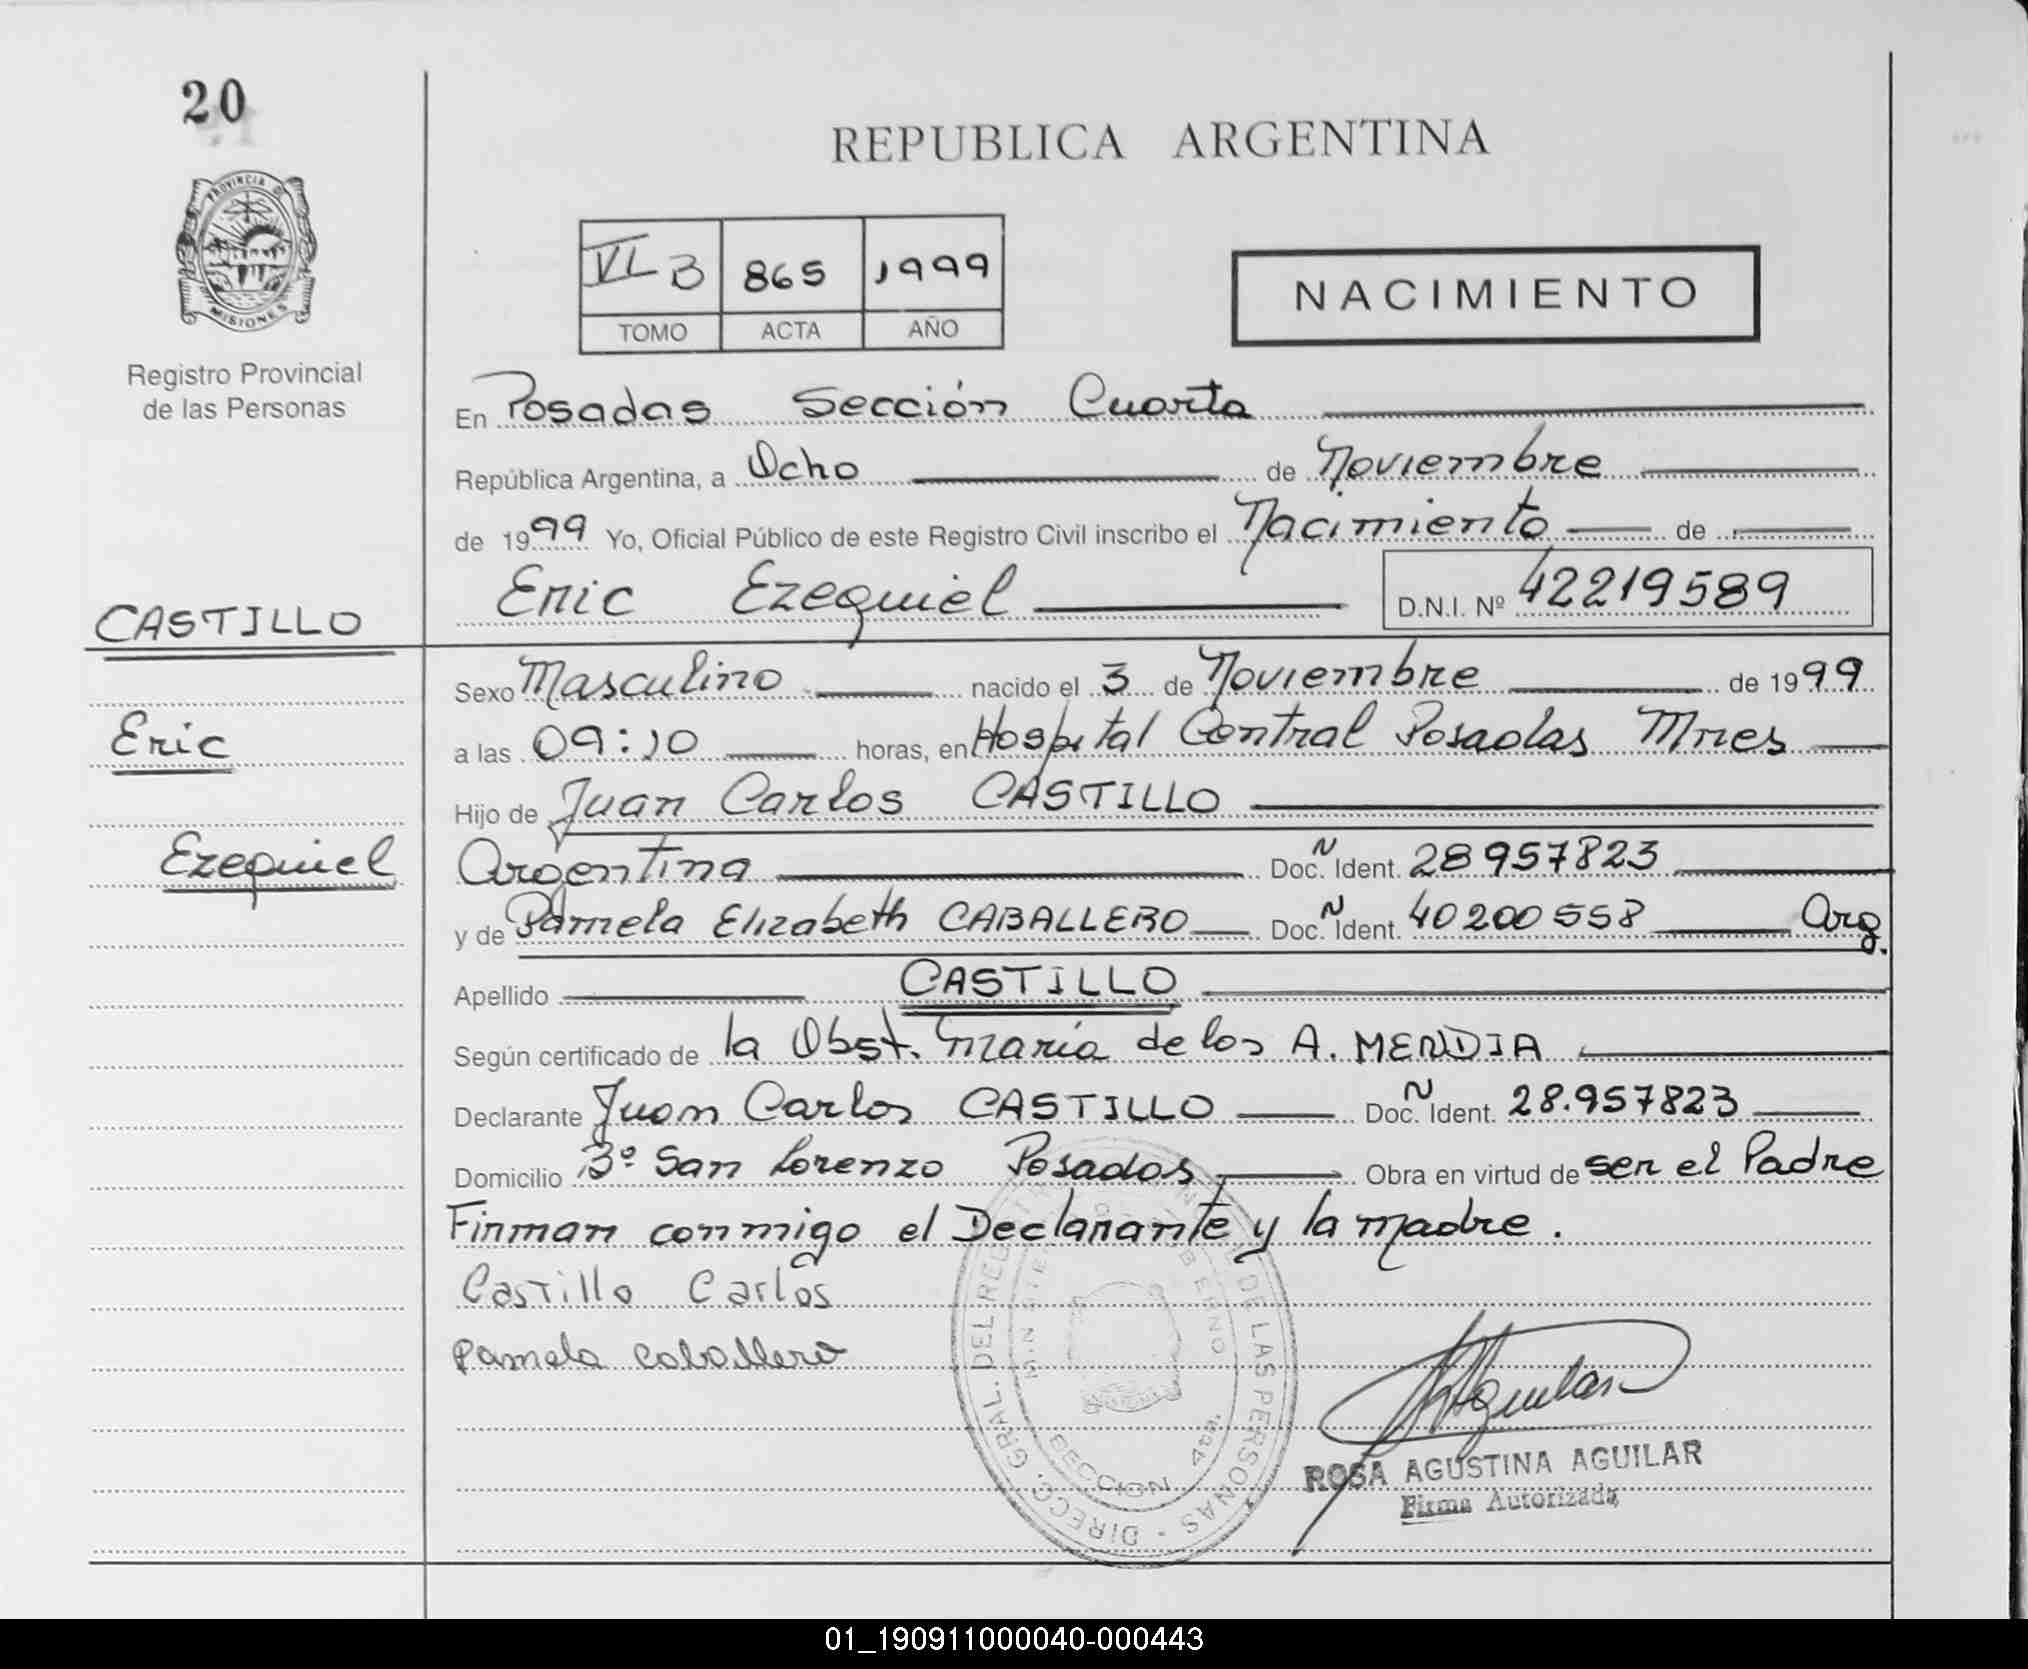 20
REPUBLICA ARGENTINA
PROVINCIA D
MISIONES
Registro Provincial
de las Personas
VI B 865 1999
TOMO ACTA AÑO
NACIMIENTO
En Posadas Sección Cuarta
República Argentina, a Ocho de Noviembre
de 1999 Yo, Oficial Público de este Registro Civil inscribo el Nacimiento de
Eric Ezequiel D.N.I. Nº 42219589
CASTILLO
Sexo Masculino nacido el 3 de Noviembre de 1999
Eric
a las 09:10 horas, en Hospital Central Posadas Mnes
Hijo de Juan Carlos CASTILLO
Ezequiel
Argentina Doc. N Ident. 28957823
y de Pamela Elizabeth CABALLERO Doc. N Ident. 40200558 Arg.
Apellido CASTILLO
Según certificado de la Obst. María de los A. MENDIA
Declarante Juan Carlos CASTILLO Doc. N Ident. 28.957823
Domicilio Bº San Lorenzo Posadas Obra en virtud de ser el Padre
Firman conmigo el Declarante y la madre.
Castillo Carlos
Pamela Caballero
DIRECC. GRAL. DEL REG DE LAS PERSONAS
SECCION 4ta.
Aguilar
ROSA AGUSTINA AGUILAR
Firma Autorizada
01_190911000040-000443